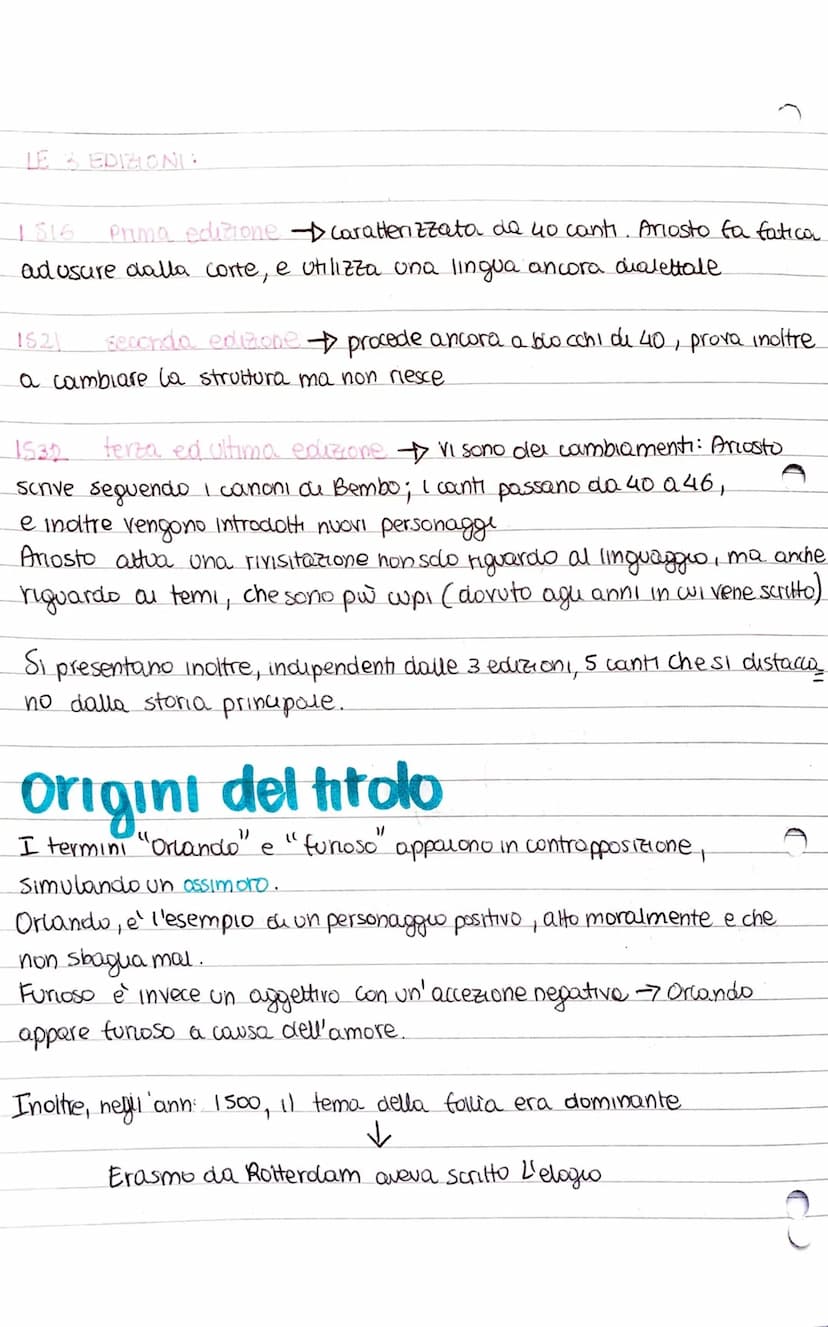 LE 3 EDIZIONI:
1516 prima edizione → caratterizzata da 40 canti. Ariosto fa fatica
ad usare dalla corte, e utilizza una lingua ancora dialettale
1521 seconda edizione → procede ancora a blocchi di 40, prova inoltre
a cambiare la struttura ma non riesce
1532 terza ed ultima edizione → vi sono dei cambiamenti: Ariosto
scrive seguendo i canoni di Bembo; i canti passano da 40 a 46,
e inoltre vengono introdotti nuovi personaggi
Ariosto attua una rivisitazione non solo riguardo al linguaggio, ma anche
riguardo ai temi, che sono più cupi (dovuto agli anni in cui vene scritto)
Si presentano inoltre, indipendenti dalle 3 edizioni, 5 canti che si distacca=
no dalla storia principale.
Origini del titolo
I termini "Orlando" e "furioso" appaiono in contrapposizione,
simulando un ossimoro.
Orlando, è l'esempio di un personaggio positivo, alto moralmente e che
non sbaglia mai.
Furioso è invece un aggettivo con un'accezione negativa → Orlando
appare furioso a causa dell'amore.
Inoltre, negli'anni 1500, il tema della follia era dominante
↓
Erasmo da Rotterdam aveva scritto L'elogio